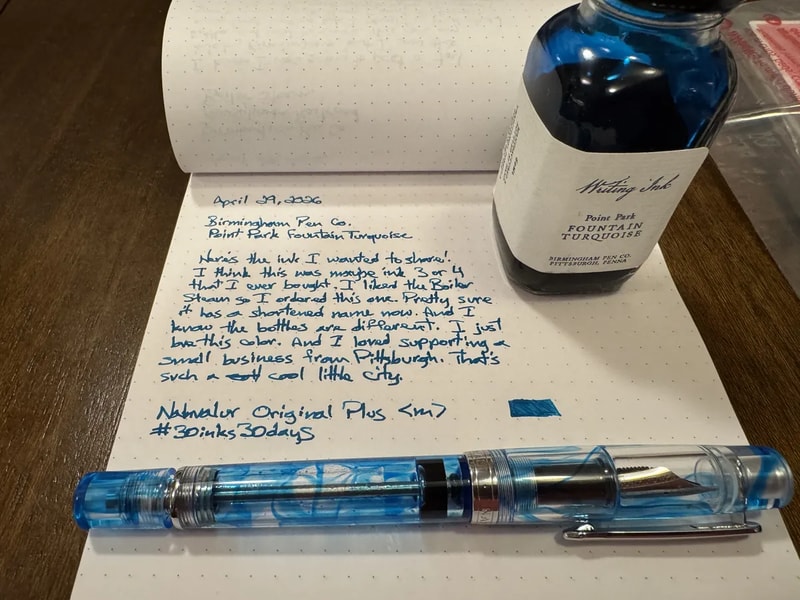 April 29, 2026
Birmingham Pen Co.
Point Park Fountain Turquoise
Here's the ink I wanted to share!
I think this was maybe ink 3 or 4
that I ever bought. I liked the Boiler
Steam so I ordered this one. Pretty sure
it has a shortened name now. And I
know the bottles are different. I just
love this color. And I loved supporting a
small business from Pittsburgh. That's
such a cool little city.
Nahvalur Original Plus <m>
#30inks30days
Writing Ink
Point Park
FOUNTAIN
TURQUOISE
BIRMINGHAM PEN CO.
PITTSBURGH, PENNA